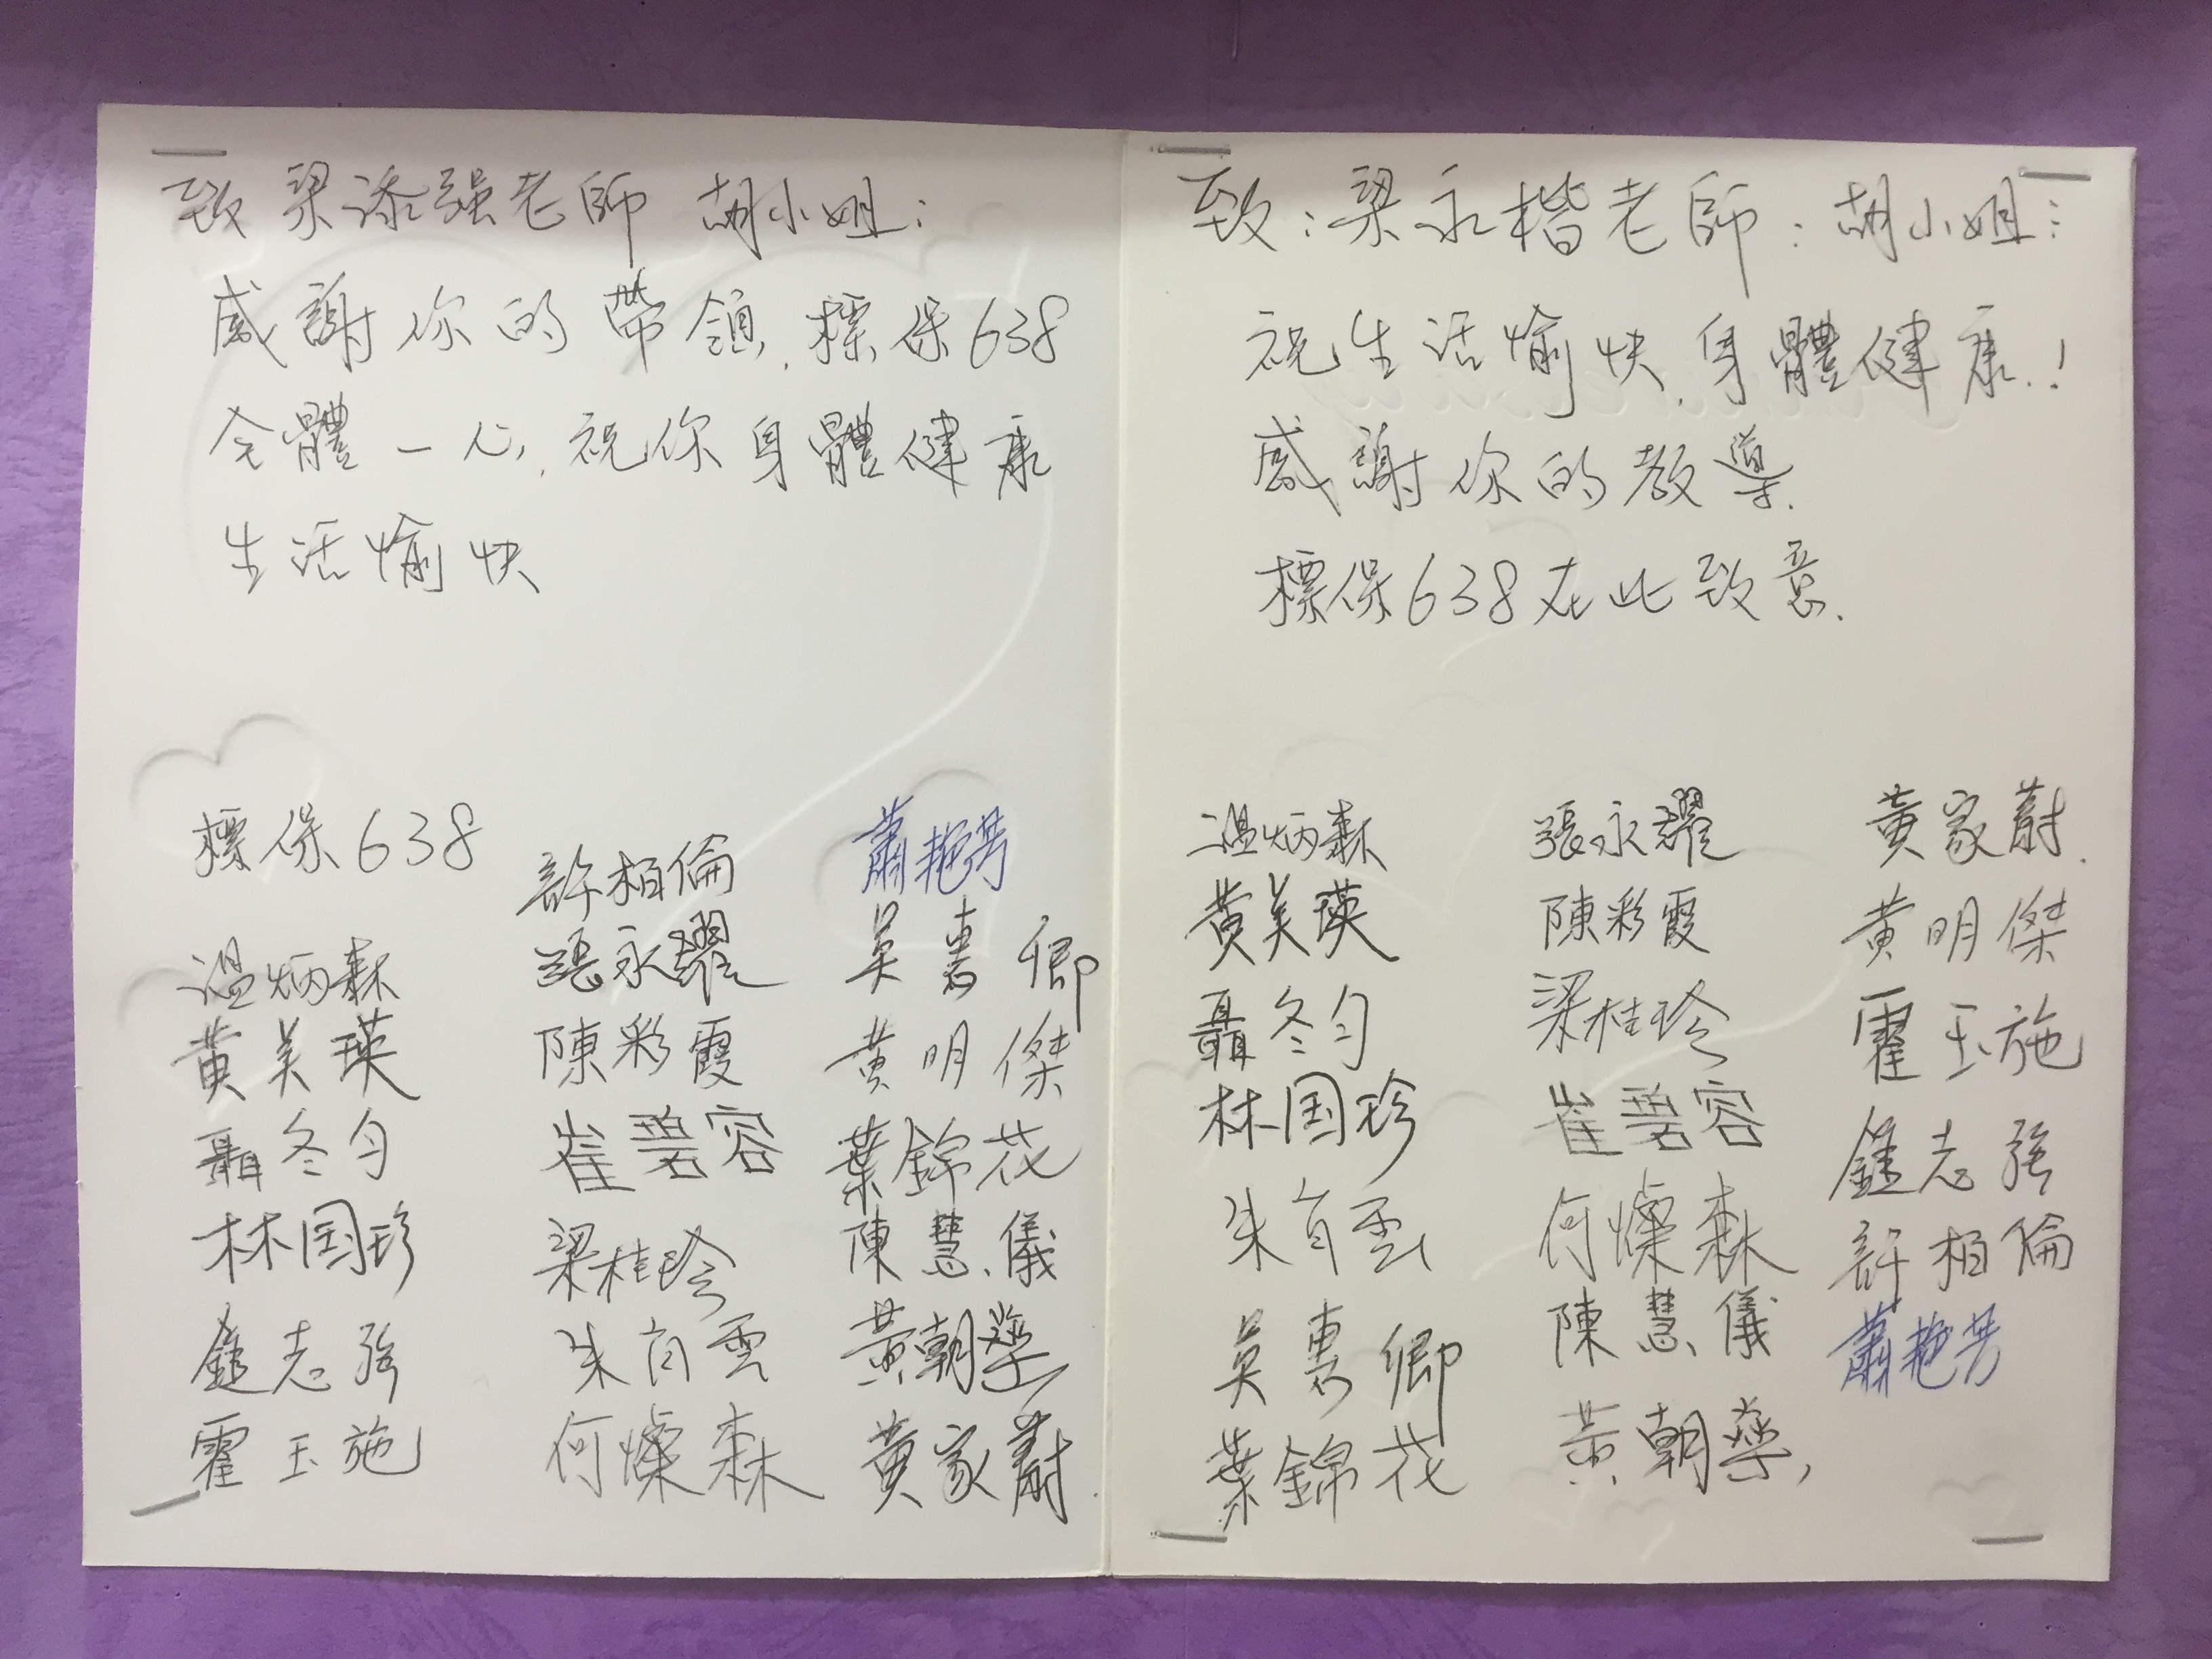 致 梁添强老師 胡小姐：
感謝你的帶領，標保638
全體一心，祝你身體健康
生活愉快
標保638
温炳森
黃美瑛
聶冬勻
林国珍
鍾志強
霍玉施
許柏倫
張永耀
陳彩霞
崔碧容
梁桂玲
朱育雲
何燦森
蕭艳芳
吴惠卿
黃明傑
葉錦花
陳慧儀
黃朝榮
黃家蔚
致：梁永楷老師：胡小姐：
祝生活愉快，身體健康！
感謝你的教導.
標保638在此致意.
温炳森
黃美瑛
聶冬勻
林国珍
朱育雲
吴惠卿
葉錦花
張永耀
陳彩霞
梁桂玲
崔碧容
何燦森
陳慧儀
黃朝榮
黃家蔚
黃明傑
霍玉施
鍾志強
許柏倫
蕭艳芳